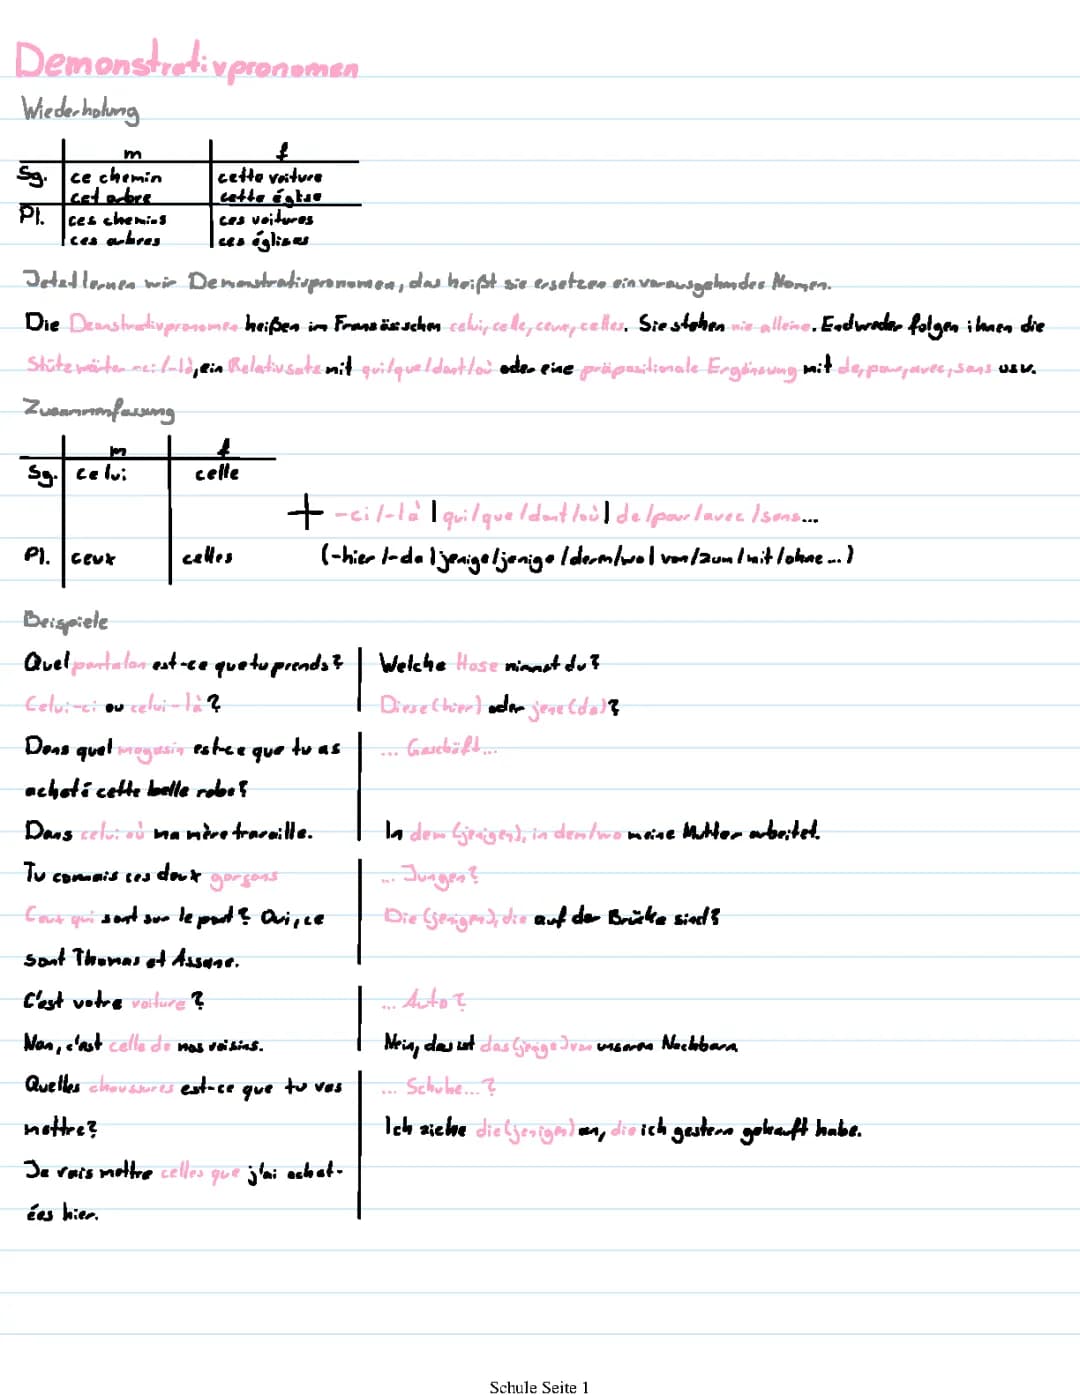 Demonstrativpronomen
Wiederholung
m f
Sg. ce chemin cette voiture
cet arbre cette église
Pl. ces chemins ces voitures
ces arbres ces églises
Jetzt lernen wir Demonstrativpronomen, das heißt sie ersetzen ein vorausgehendes Nomen.
Die Demonstrativpronomen heißen im Französischen celui, celle, ceux, celles. Sie stehen nie alleine. Endweder folgen ihnen die
Stützwörter -ci/-là, ein Relativsatz mit qui/que/dont/où oder eine präpositionale Ergänzung mit de, pour, avec, sans usw.
Zusammenfassung
m f
Sg. celui celle
+ -ci/-là | qui/que/dont/où | de/pour/avec/sans...
Pl. ceux celles (-hier/-da | jenige/jenige/derm/wo | von/zum/mit/ohne...)
Beispiele
Quel pantalon est-ce que tu prends? Welche Hose nimmst du?
Celui-ci ou celui-là? Diese (hier) oder jene (da)?
Dans quel magasin est-ce que tu as ... Geschäft...
acheté cette belle robe?
Dans celui où ma mère travaille. In dem (jenigen), in dem/wo meine Mutter arbeitet.
Tu connais ces deux garçons ... Jungen?
Ceux qui sont sur le pont? Oui, ce Die (jenigen), die auf der Brücke sind?
sont Thomas et Assane.
C'est votre voiture? ... Auto?
Non, c'est celle de nos voisins. Nein, das ist das (jenige) von unseren Nachbarn
Quelles chaussures est-ce que tu vas ... Schuhe...?
mettre? Ich ziehe die (jenigen) an, die ich gestern gekauft habe.
Je vais mettre celles que j'ai achet-
ées hier.
Schule Seite 1